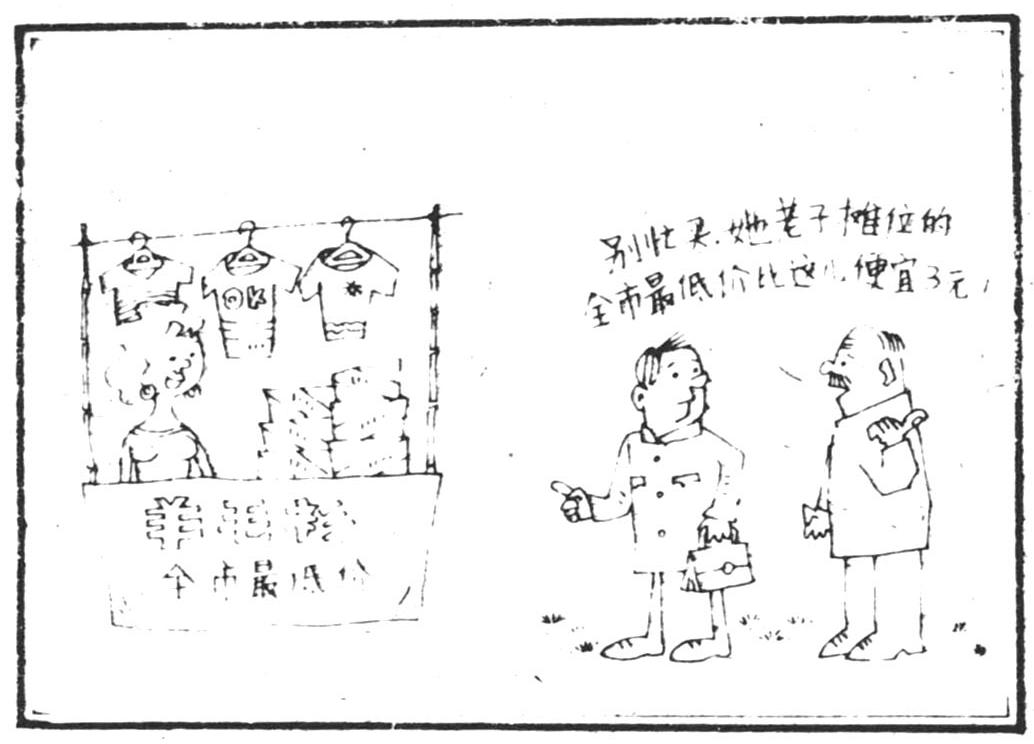 别忙买,她老子摊位的
全市最低价比这儿便宜3元!
OK
羊毛衫
全市最低价